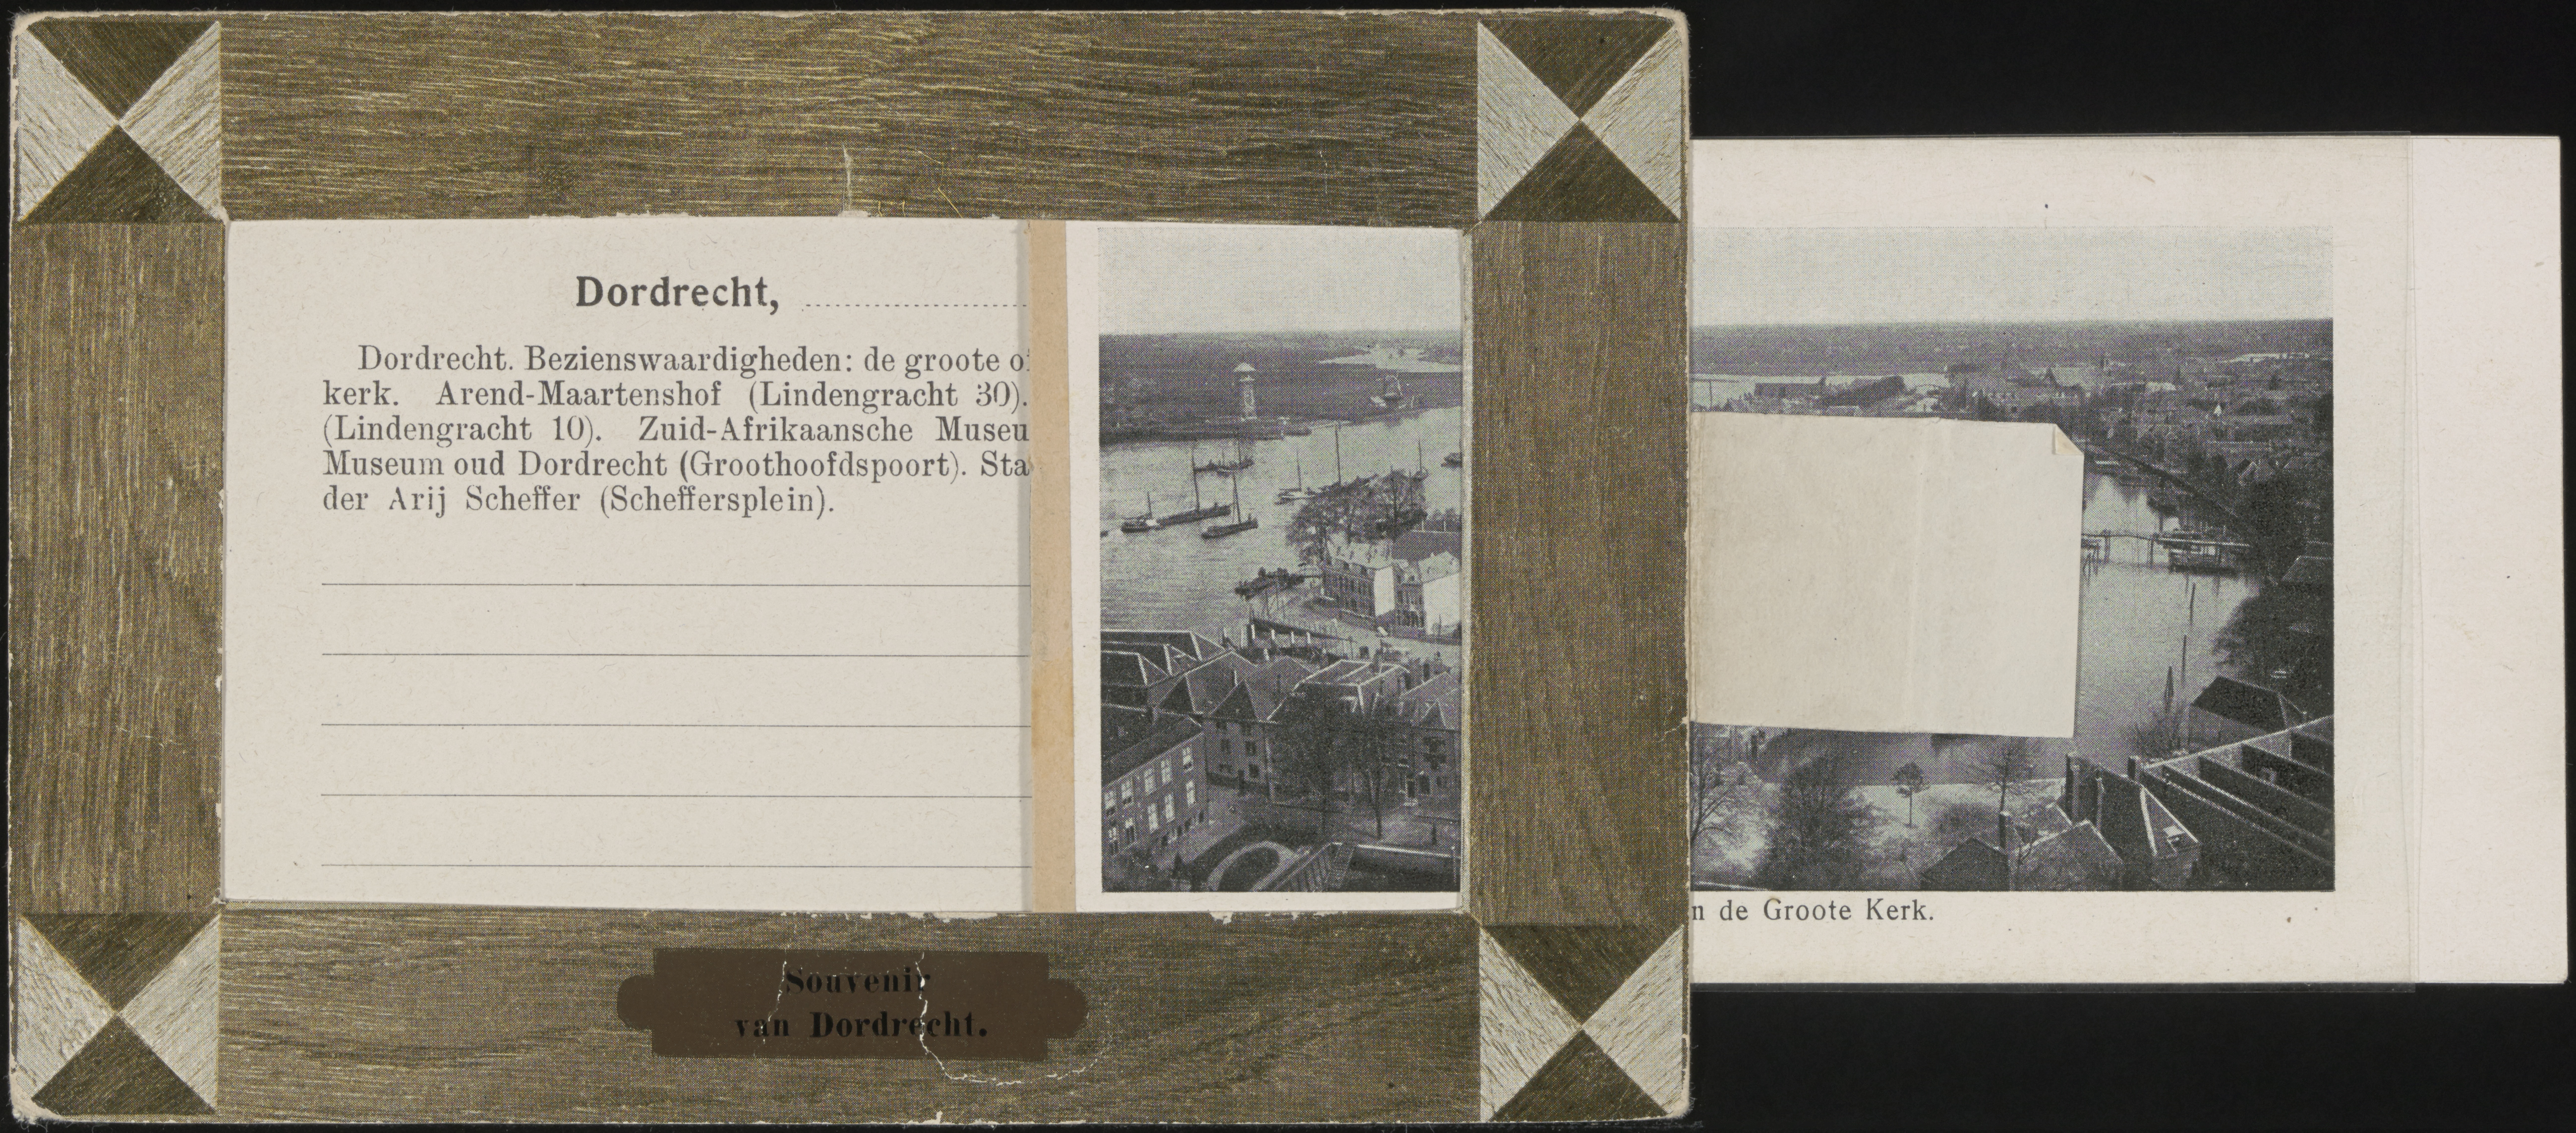 Dordrecht,
Dordrecht. Bezienswaardigheden: de groote
kerk. Arend-Maartenshof (Lindengracht 30).
(Lindengracht 10). Zuid-Afrikaansche Museu
Museum oud Dordrecht (Groothoofdspoort). Sta
der Arij Scheffer (Scheffersplein).
Souvenir
van Dordrecht.
n de Groote Kerk.